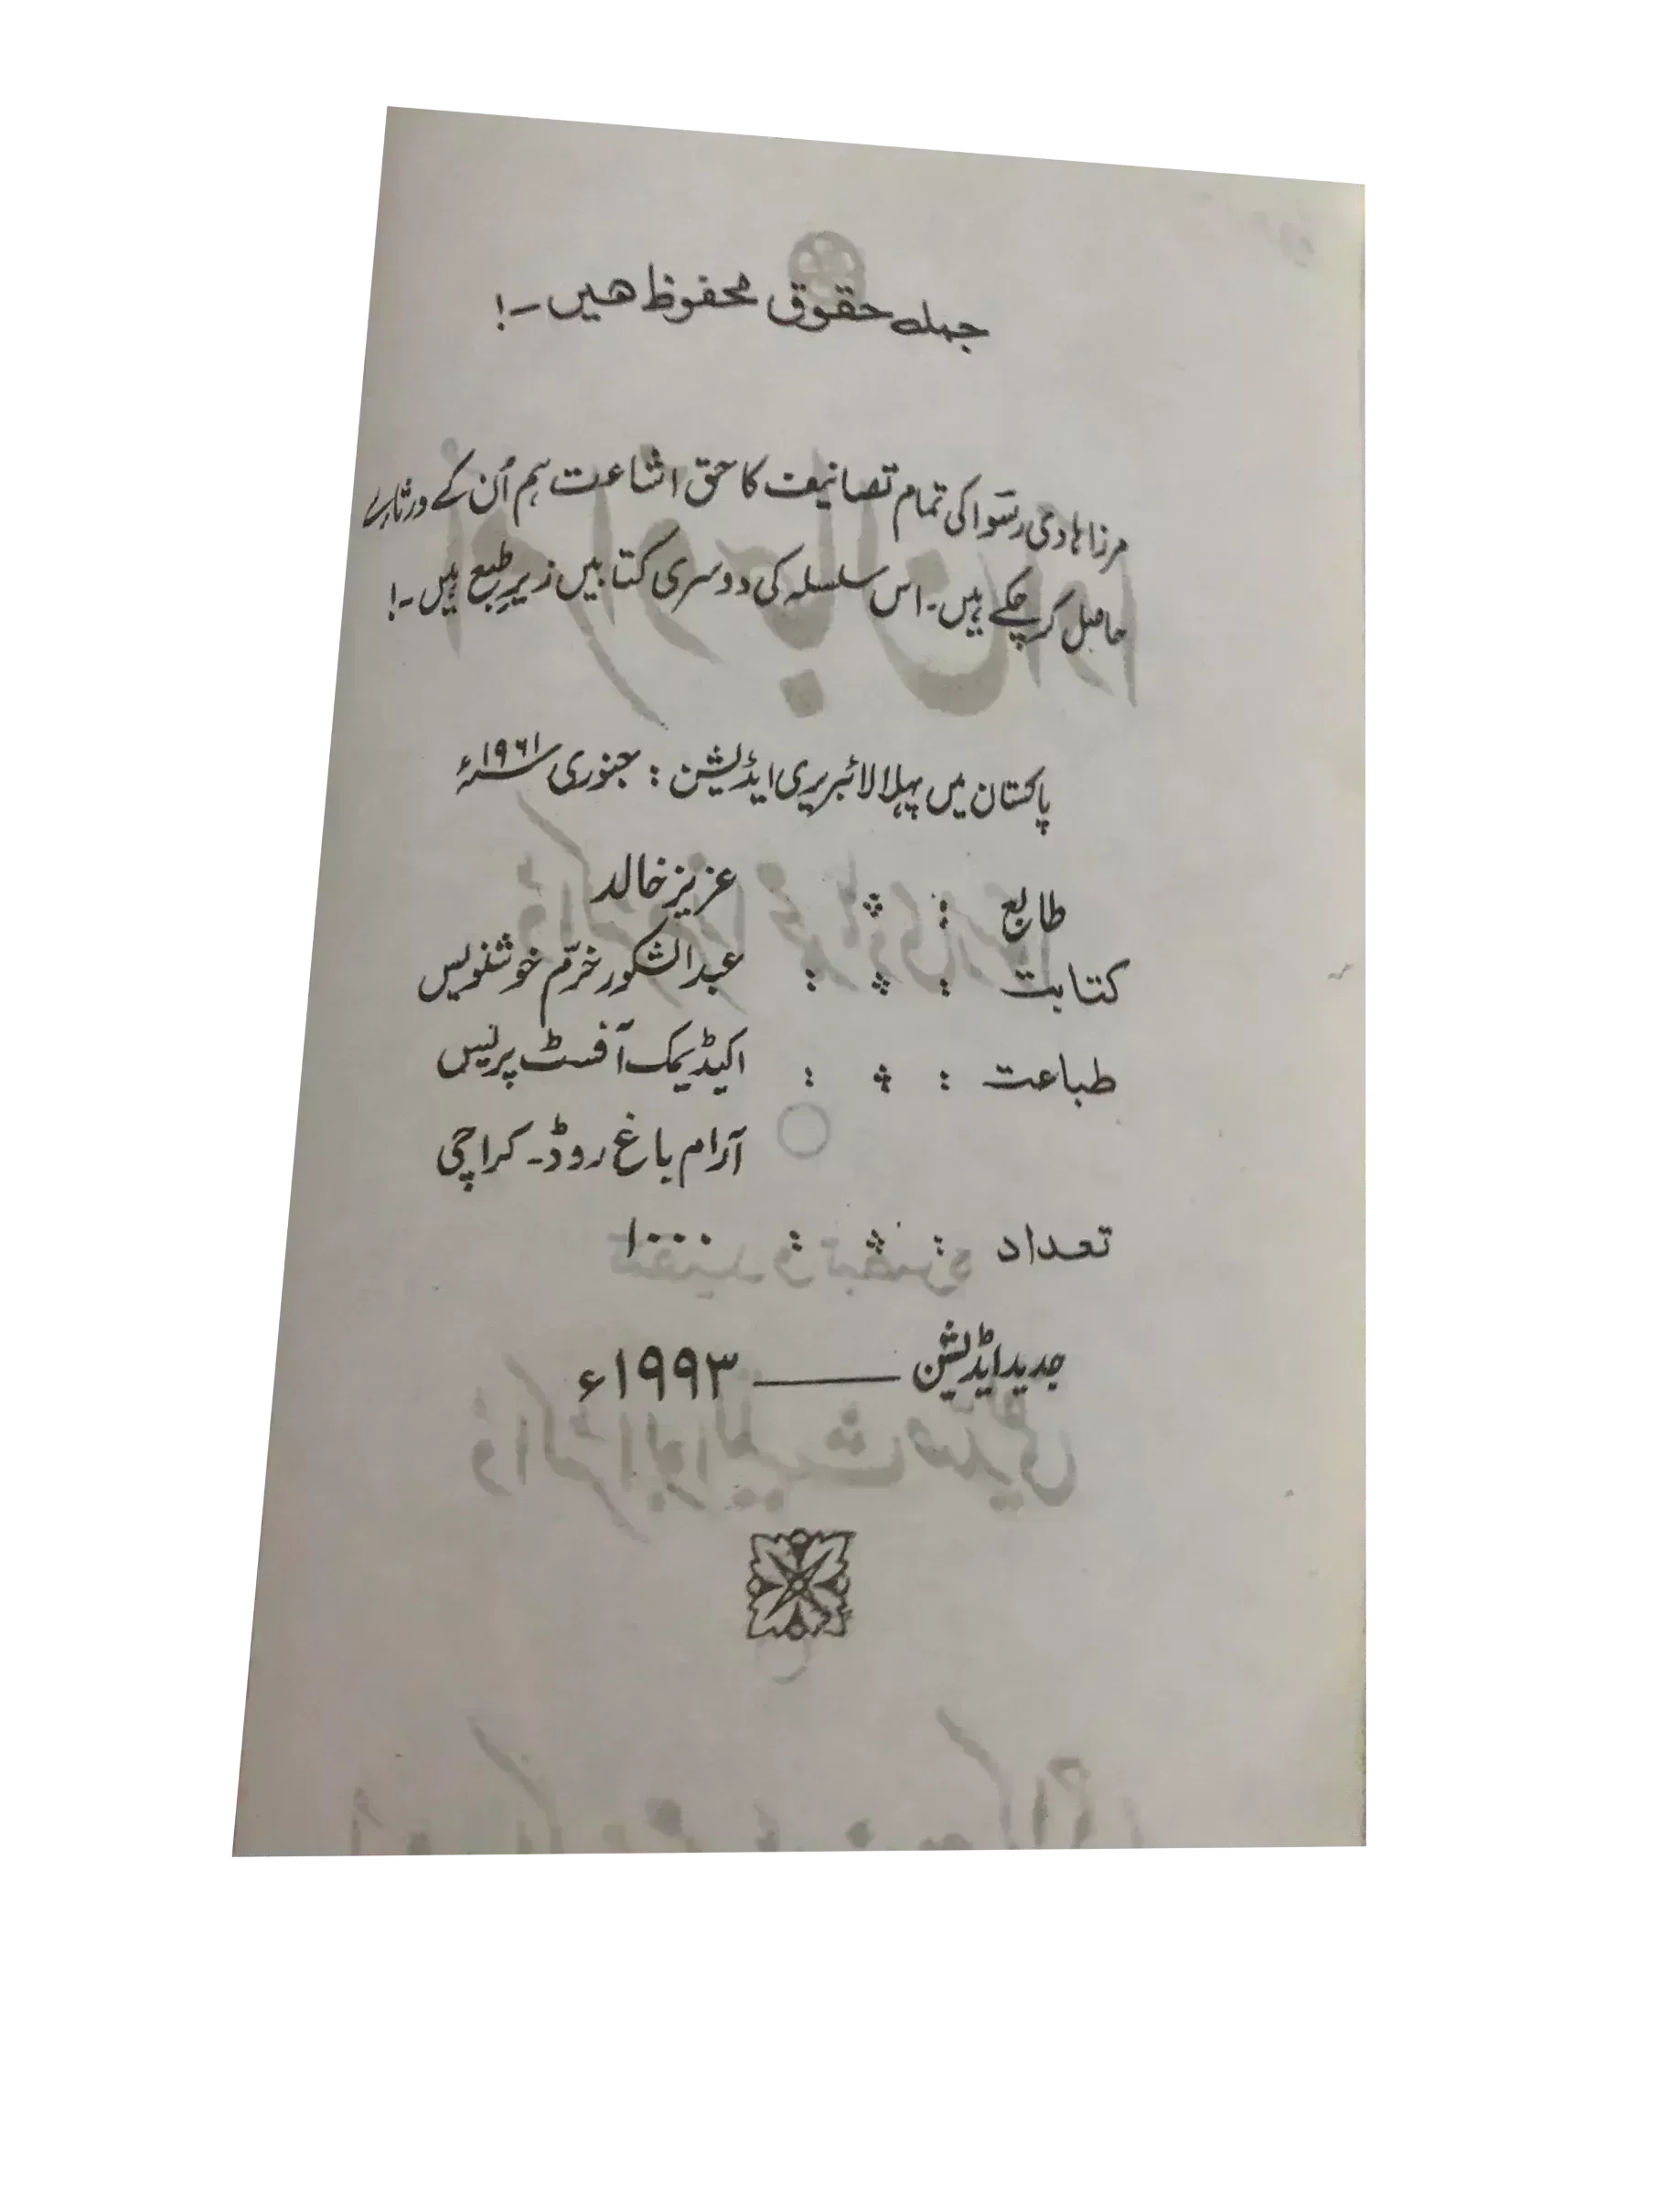 جملہ حقوق محفوظ ہیں۔!
مرزا ہادی رسوا کی تمام تصانیف کا حق اشاعت ہم اُن کے ورثاء سے
حاصل کر چکے ہیں۔ اس سلسلہ کی دوسری کتابیں زیرِ طبع ہیں۔!
پاکستان میں پہلا لائبریری ایڈیشن : جنوری ۱۹۶۱ء
طابع : عزیز خالد
کتابت : : عبدالشکور خرّم خوشنویس
طباعت : : اکیڈیمک آفسٹ پریس
آرام باغ روڈ۔ کراچی
تعداد : : ۱۰۰۰
جدید ایڈیشن ——— ۱۹۹۳ء